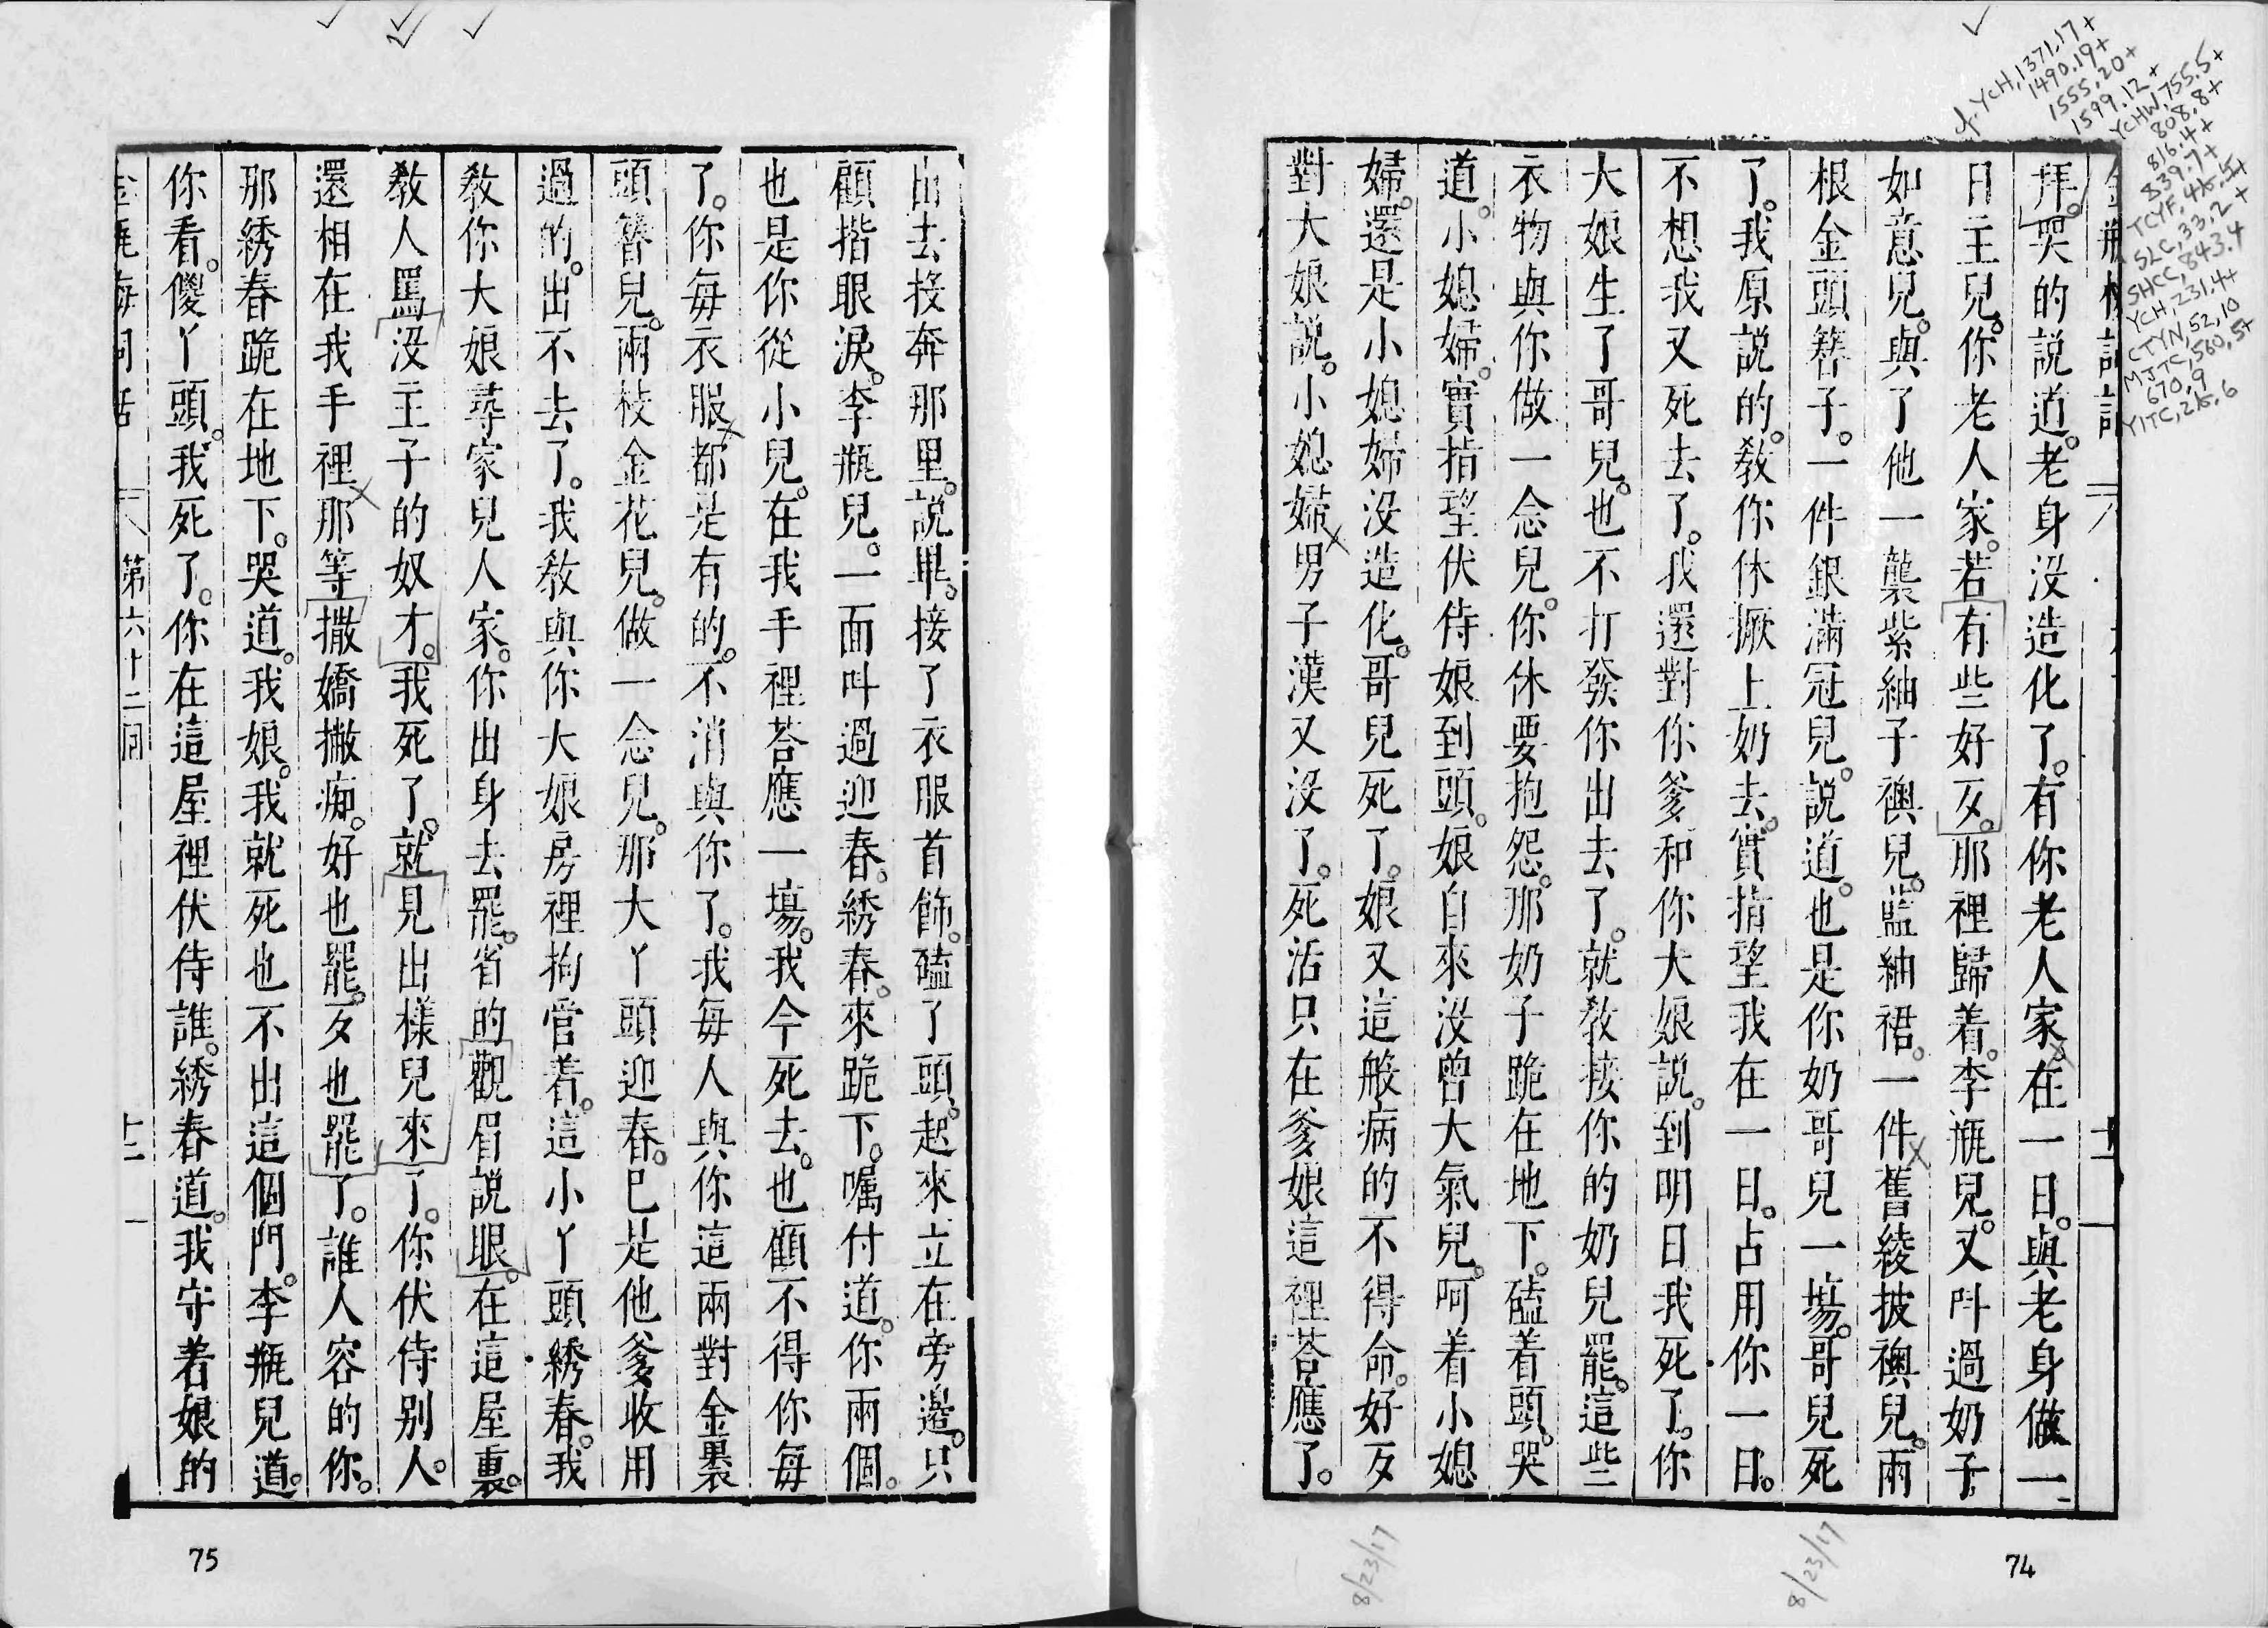 cf. YCH, 1371.17+
1490.19+
1555.20+
1599.12+
YCHW, 755.5+
808.8+
816.4+
839.7+
SLC, 33.2+
SHCC, 843.4
YCH, 231.4+
CTYN, 52.10
MJTC, 560.5+
670.9
拜。哭的說道。老身没造化了。有你老人家在一日。與老身做一
日主兒。你老人家。若有些好歹。那裡歸着。李瓶兒。又呌過奶子
如意兒。與了他一襲紫紬子襖兒。藍紬裙。一件舊綾披襖兒。兩
根金頭簪子。一件銀滿冠兒。說道。也是你奶哥兒一場。哥兒死
了。我原說的。教你休撅上奶去。實指望我在一日。占用你一日。
不想我又死去了。我還對你爹和你大娘說。到明日我死了。你
大娘生了哥兒。也不打發你出去了。就教接你的奶兒罷。這些
衣物與你做一念兒。你休要抱怨。那奶子跪在地下。磕着頭。哭
道。小媳婦。實指望伏侍娘到頭。娘自來没曾大氣兒。呵着小媳
婦。還是小媳婦没造化。哥兒死了。娘又這般病的不得命。好歹
對大娘說。小媳婦男子漢又没了。死活只在爹娘這裡荅應了。
8/23/17
8/23/17
74
出去投奔那里。說畢。接了衣服首飾。磕了頭。起來立在旁邊。只
顧揩眼淚。李瓶兒。一面呌過迎春。綉春。來跪下。囑付道。你兩個。
也是你從小兒。在我手裡荅應一場。我今死去。也顧不得你每
了。你每衣服都是有的。不消與你了。我每人與你這兩對金裹
頭簪兒。兩枝金花兒。做一念兒。那大丫頭迎春。已是他爹收用
過的。出不去了。我教與你大娘房裡拘管着。這小丫頭綉春。我
教你大娘尋家兒人家。你出身去罷。省的觀眉說眼。在這屋裏。
教人罵没主子的奴才。我死了。就見出樣兒來了。你伏侍别人。
還相在我手裡那等撒嬌撇痴。好也罷。歹也罷了。誰人容的你。
那綉春跪在地下。哭道。我娘。我就死也不出這個門。李瓶兒道。
你看。傻丫頭。我死了。你在這屋裡伏侍誰。綉春道。我守着娘的
金瓶梅詞話 第六十二囘 十二
75